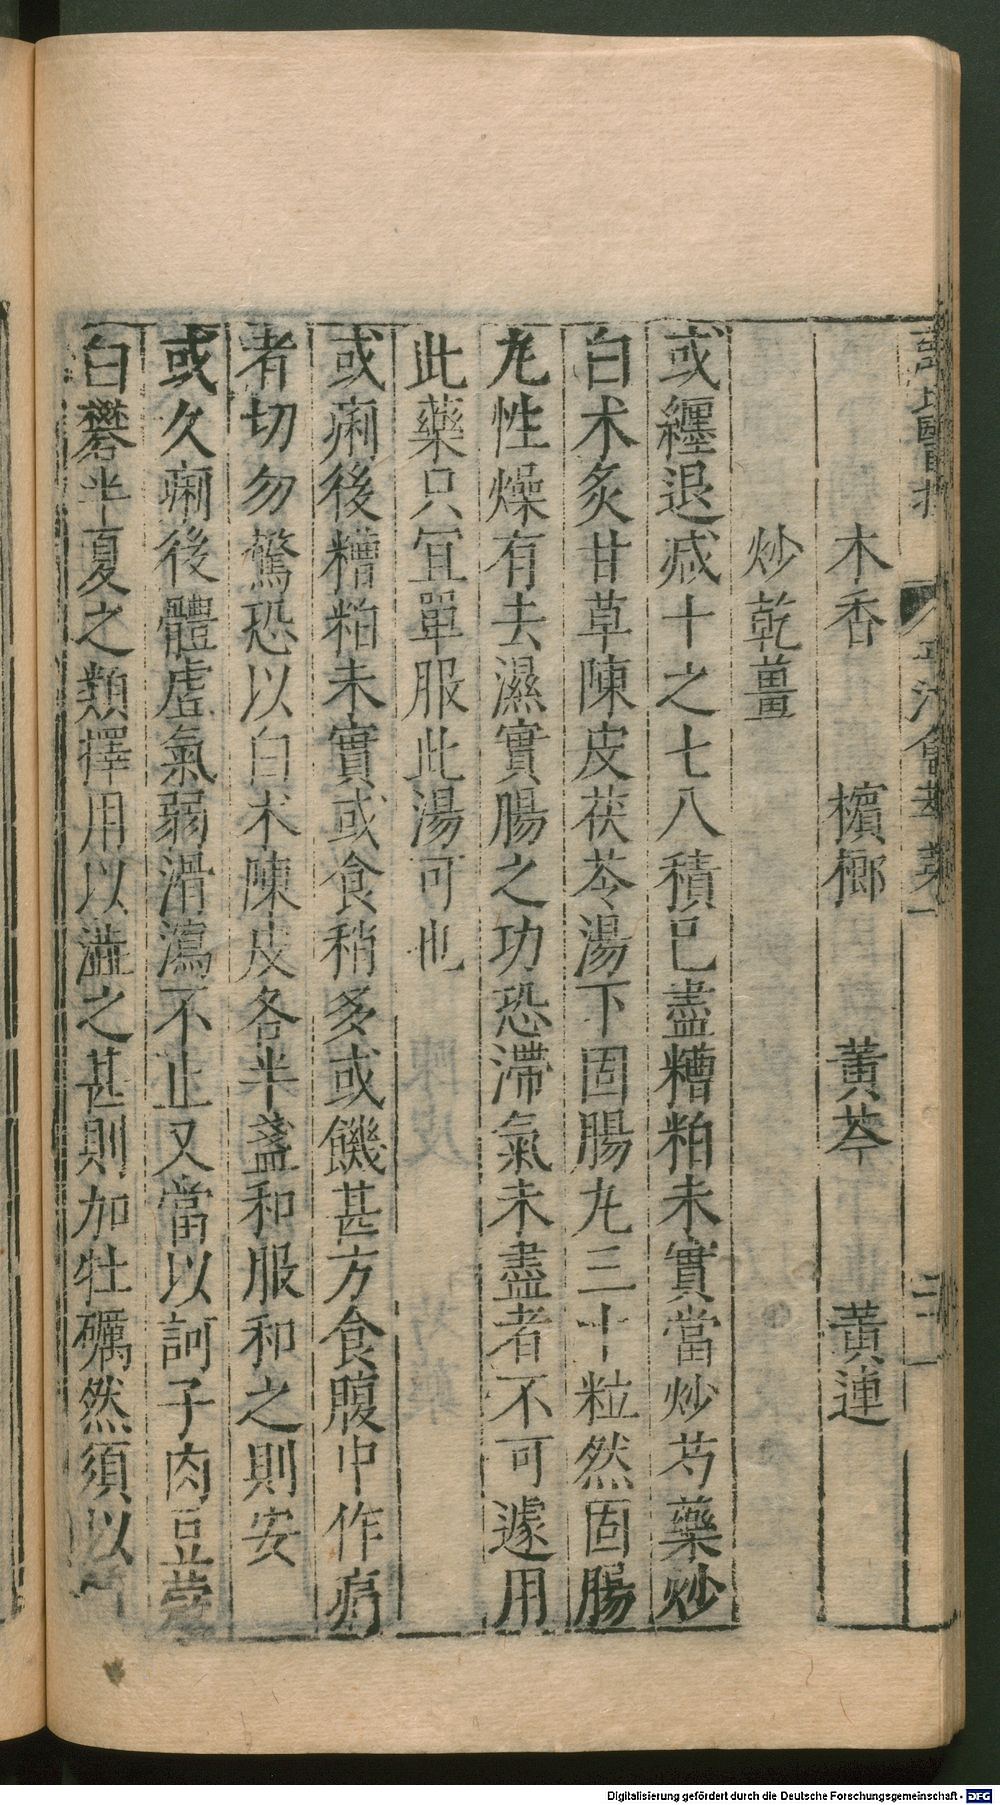 木香　檳榔　黃芩　黃連
炒乾薑
或纏退减十之七八積已盡糟粕未實當炒芍藥炒
白术炙甘草陳皮茯苓湯下固腸丸三十粒然固腸
丸性燥有去濕實腸之功恐滯氣未盡者不可遽用
此藥只宜單服此湯可也
或痢後糟粕未實或食稍多或饑甚方食腹中作痛
者切勿驚恐以白术陳皮各半盞和服和之則安
或久痢後體虛氣弱滑瀉不止又當以訶子肉豆蔻
白礬半夏之類擇用以澁之甚則加牡礪然須以
Digitalisierung gefördert durch die Deutsche Forschungsgemeinschaft - DFG